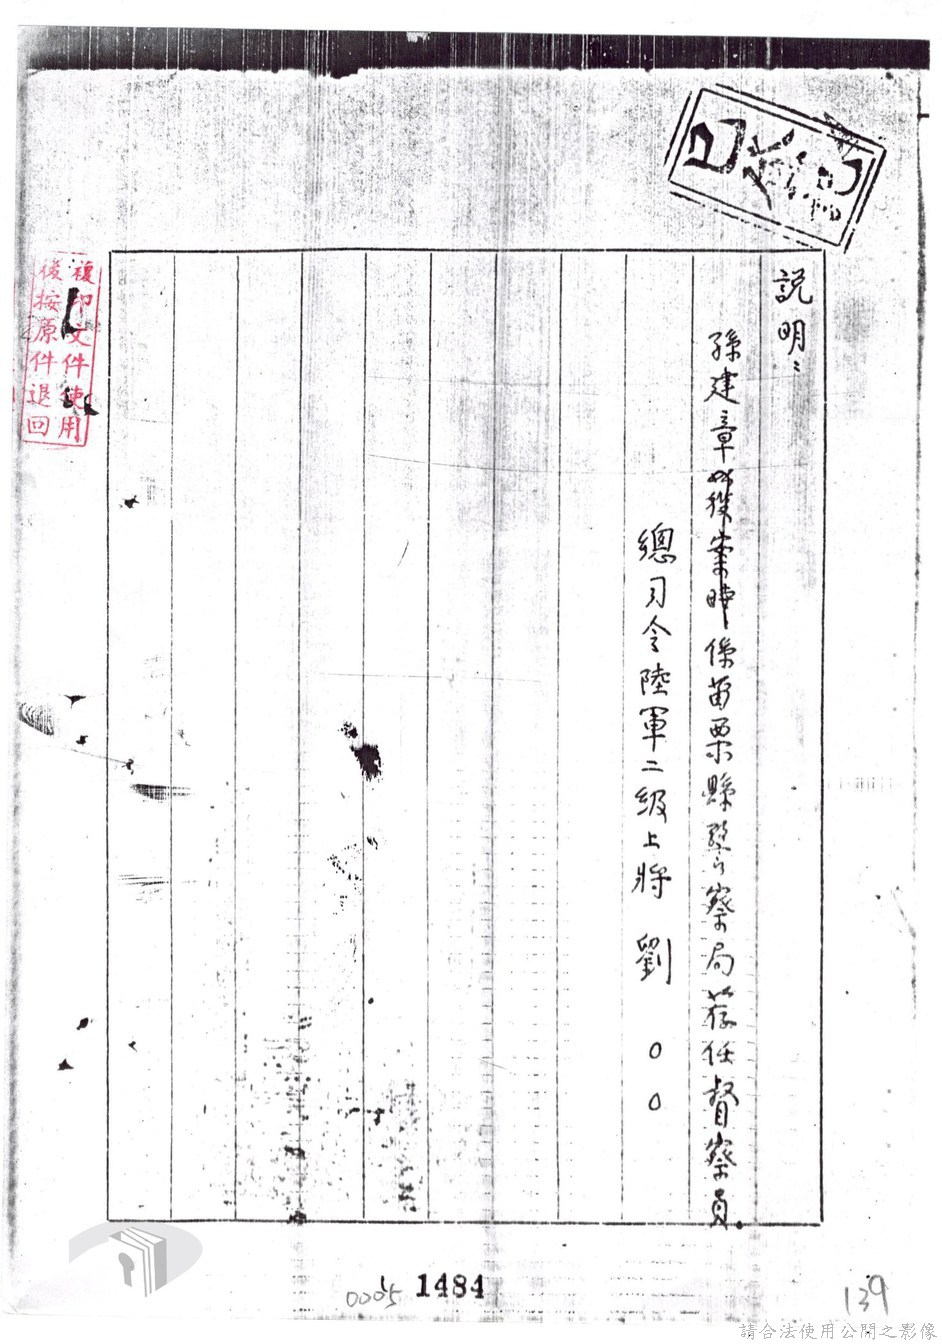 說明：
孫建章獲案時係苗栗縣警察局荐任督察員
總司令陸軍二級上將 劉 ○○
複印文件使用
後按原件退回
0005
1484
139
請合法使用公開之影像